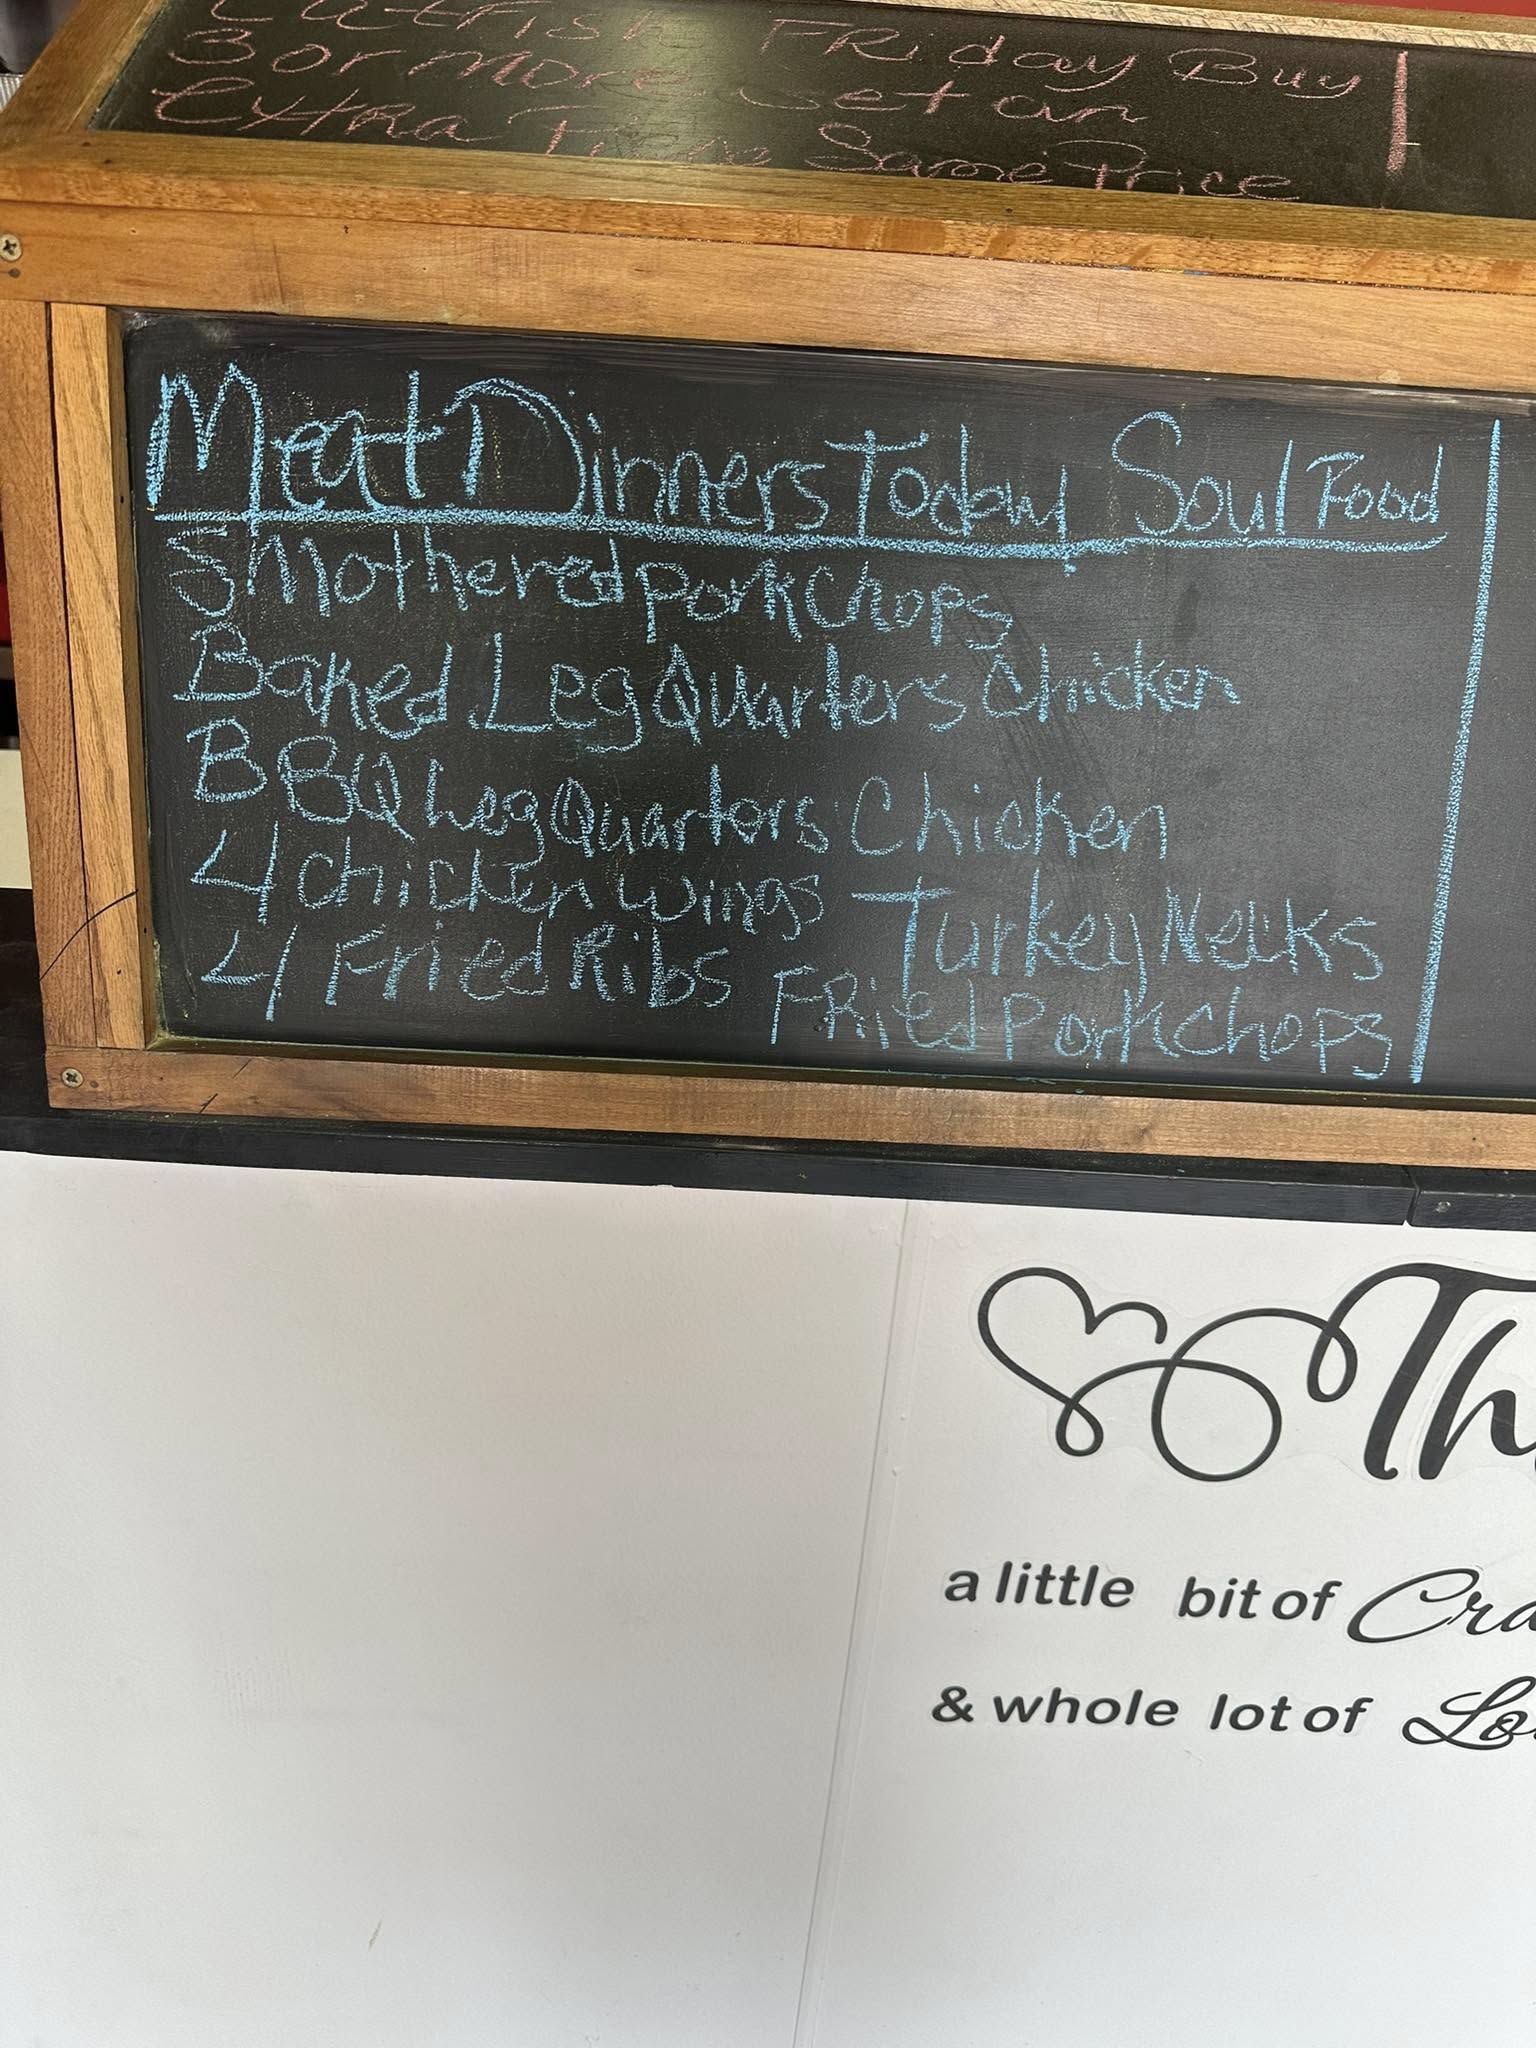 Catfish Friday Buy
3 or more Get an
Extra Same Price
Meat Dinners Today Soul Food
Smothered Pork Chops
Baked Leg Quarters Chicken
BBQ Leg Quarters Chicken
4 Chicken Wings Turkey Necks
4 Fried Ribs Fried Pork Chops
a little bit of
& whole lot of